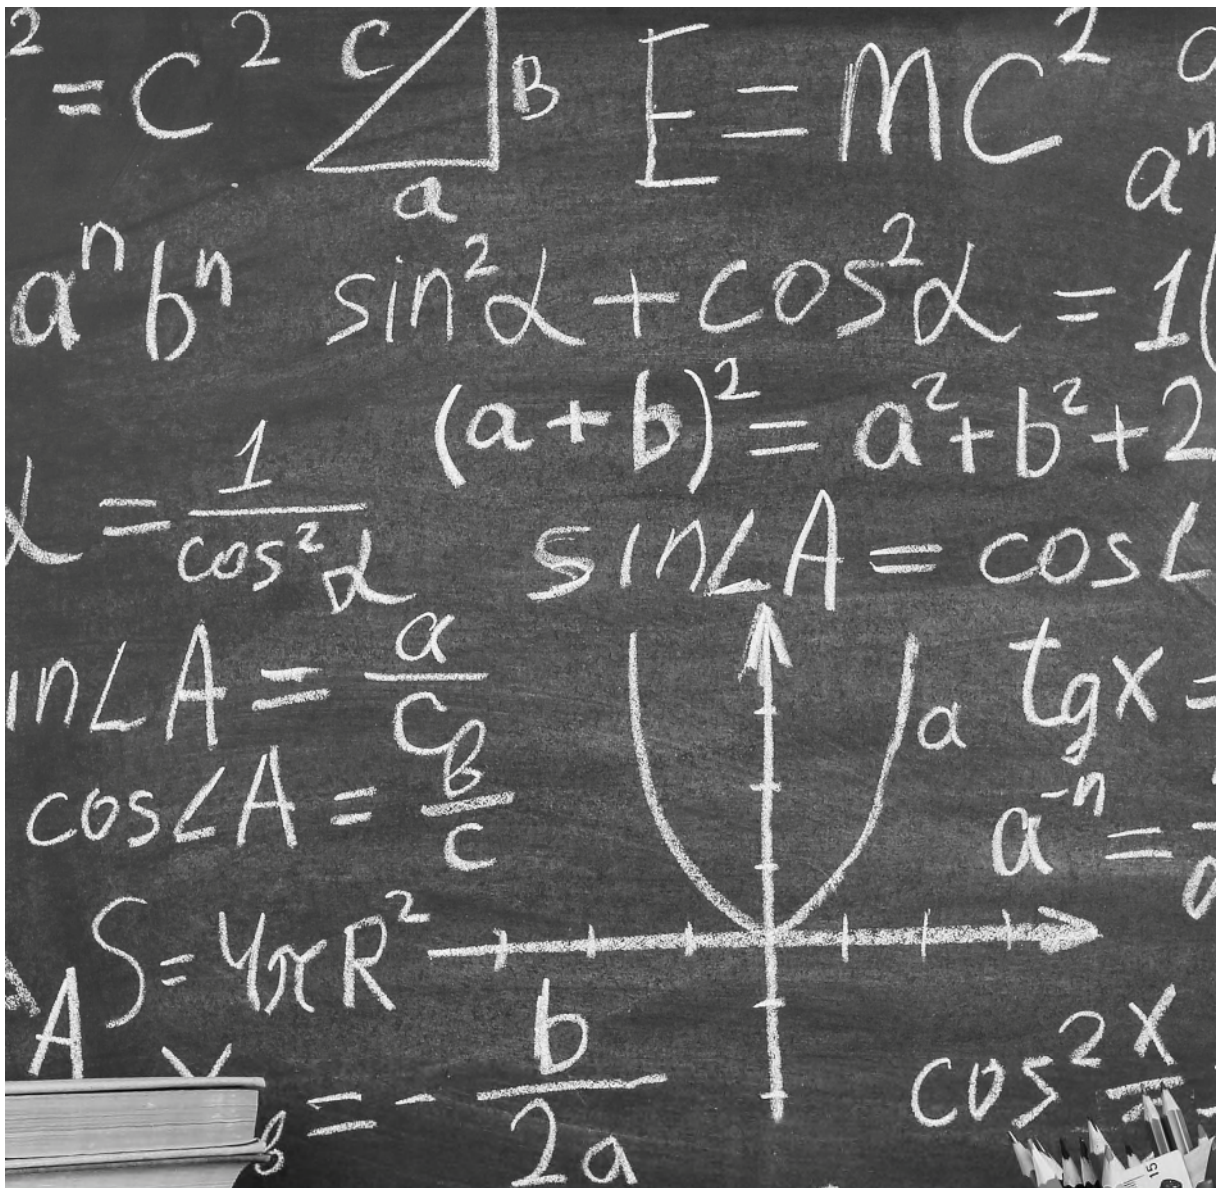 ² = C² C B E = MC²
a aⁿ
aⁿbⁿ sin²α + cos²α = 1(
(a + b)² = a² + b² + 2
α = 1/cos²α sin∠A = cos∠
in∠A = a/c a tgx =
cos∠A = B/c a⁻ⁿ =
S = 4πR²
A
B = - b/2a cos² x
15